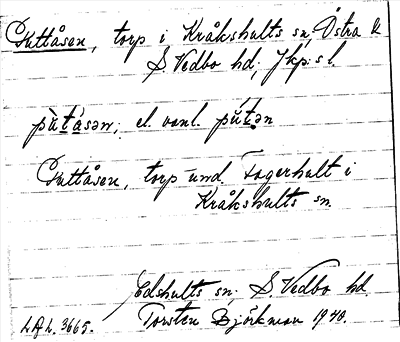 Puttåsen, torp i Kråkshults sn, Östra &
S. Vedbo hd; Jkp:s l.
pùt́ásən; el. vanl. pút́ən
Puttåsen, torp und. Fagerhult i
Kråkshults sn
Edshults sn; S. Vedbo hd.
L.A.L. 3665. Torsten Björkman 1940.